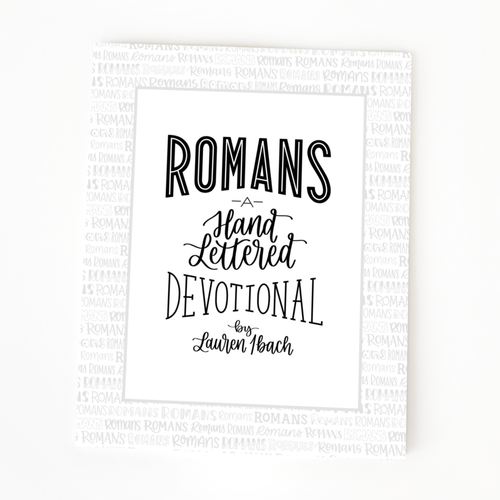 ROMANS
A
Hand
Lettered
DEVOTIONAL
by
Lauren Ibach